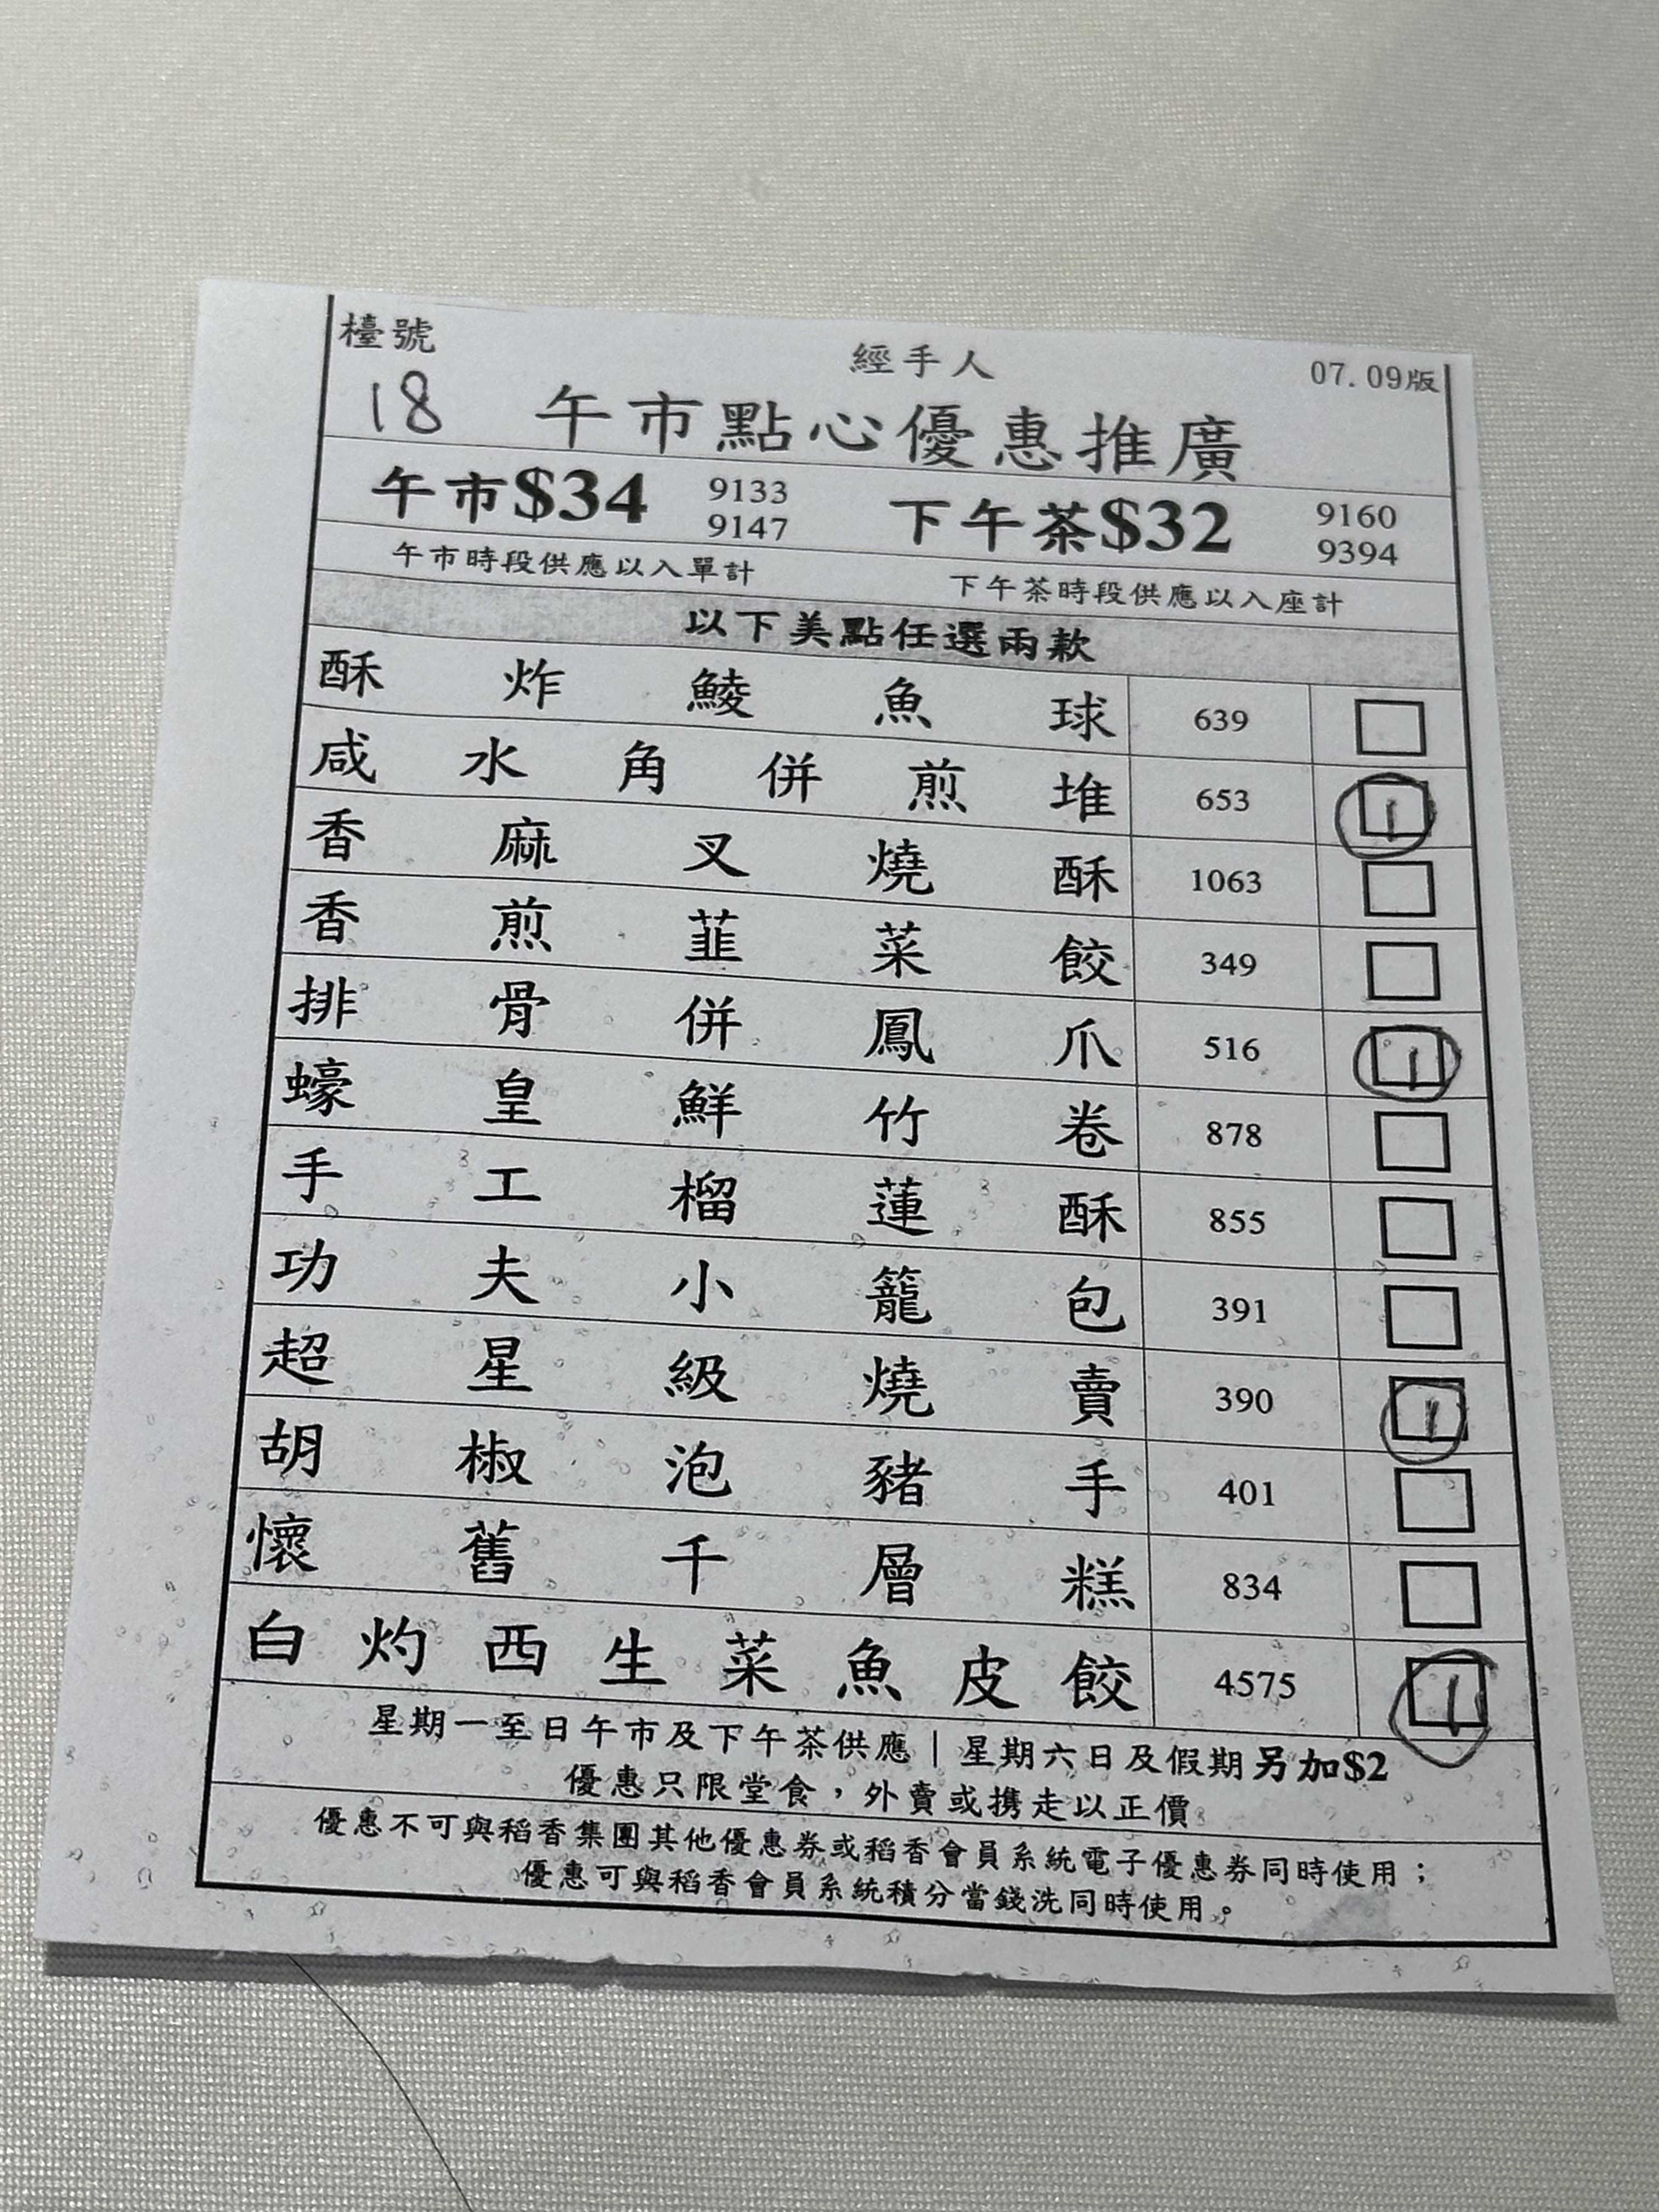 檯號 經手人 07.09版
18 午市點心優惠推廣
午市$34 9133 9147 下午茶$32 9160 9394
午市時段供應以入單計 下午茶時段供應以入座計
以下美點任選兩款
酥炸鯪魚球 639
咸水角併煎堆 653 1
香麻叉燒酥 1063
香煎韮菜餃 349
排骨併鳳爪 516 1
蠔皇鮮竹卷 878
手工榴蓮酥 855
功夫小籠包 391
超星級燒賣 390 1
胡椒泡豬手 401
懷舊千層糕 834
白灼西生菜魚皮餃 4575 1
星期一至日午市及下午茶供應｜星期六日及假期另加$2
優惠只限堂食，外賣或携走以正價
優惠不可與稻香集團其他優惠券或稻香會員系統電子優惠券同時使用；
優惠可與稻香會員系統積分當錢洗同時使用。